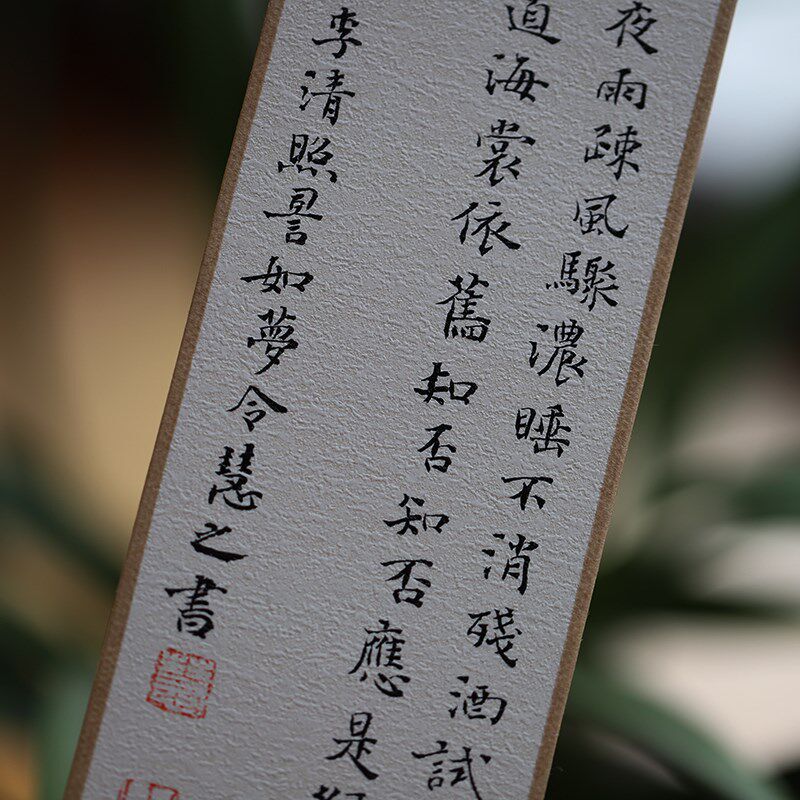 夜雨疎風驟濃睡不消殘酒試
道海裳依舊知否知否應是
李清照如夢令慧之書